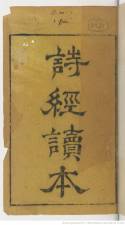 詩經讀本